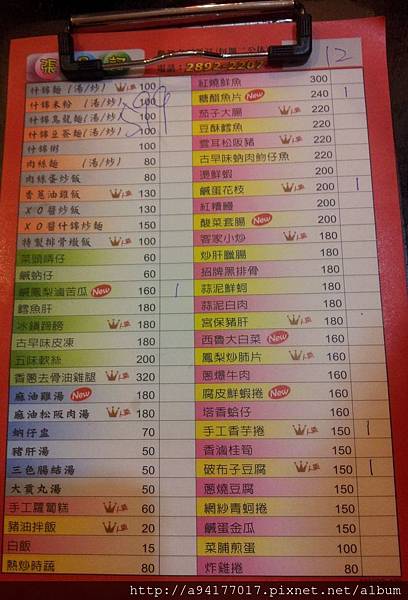 電話：2892-2202
12
什錦麵（湯/炒） 100
什錦米粉（湯/炒） 100
什錦烏龍麵（湯/炒） 100
什錦豆菜麵（湯/炒） 100
什錦粥 100
肉絲麵（湯/炒） 80
肉絲蛋炒飯 80
香蔥油雞飯 130
XO醬炒飯 130
XO醬什錦炒麵 150
特製排骨燉飯 100
菜頭
60
鹹蚋仔 60
鹹鳳梨滷苦瓜 New 160 1
鱈魚肝 180
冰鎮蹄膀 180
古早味皮凍 180
五味軟絲 200
香蔥去骨油雞腿 320
麻油雞湯 New 180
麻油松阪肉湯 180
蚋仔
70
豬肝湯 50
三色腸結湯 50
大貢丸湯 50
手工蘿蔔糕 60
豬油拌飯 20
白飯 15
熱炒時蔬 80
紅燒鮮魚 300
糖醋魚片 New 240 1
茄子大腸 240
豆酥鱈魚 220
雲耳松阪豬 220
古早味蚋肉魩仔魚 220
燙鮮蝦 200
鹹蛋花枝 200 1
紅糟鰻 200
酸菜套腸 New 200
客家小炒 180
炒肝臘腸 180
招牌黑排骨 180
蒜泥鮮蚵 180
蒜泥白肉 180
宮保豬肝 180
西魯大白菜 New 160
鳳梨炒肺片 160
蔥爆牛肉 160
腐皮鮮蝦捲 New 160
塔香蛤仔 160
手工香芋捲 150 1
香滷桂筍 150
破布子豆腐 150 1
蔥燒豆腐 150
網紗青蚵捲 150
鹹蛋金瓜 150
菜脯煎蛋 100
炸雞捲 80
http://a94177017.pixnet.net/album